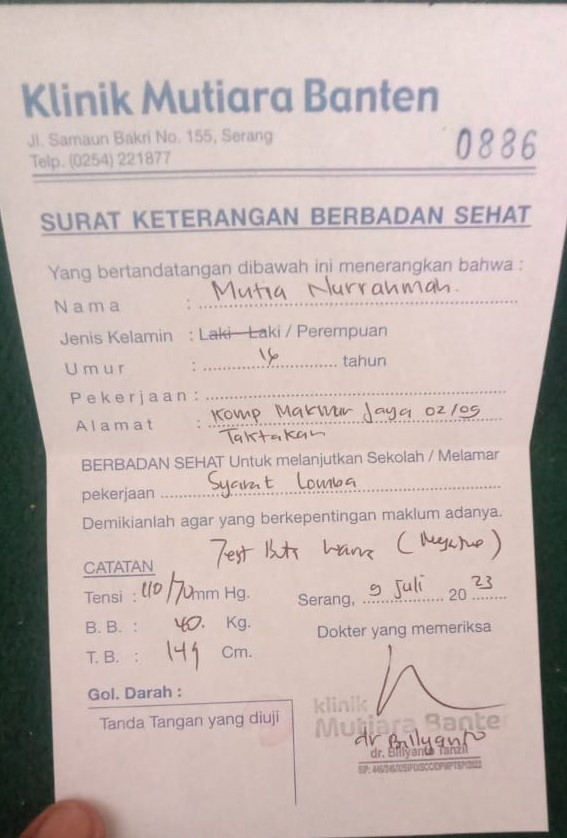 Klinik Mutiara Banten
Jl. Samaun Bakri No. 155, Serang
Telp. (0254) 221877
0886
SURAT KETERANGAN BERBADAN SEHAT
Yang bertandatangan dibawah ini menerangkan bahwa :
Nama : Mutia Nurrahmah.
Jenis Kelamin : Laki - Laki / Perempuan
Umur : tahun
Pekerjaan :
Alamat : Komp Makmur Jaya 02/05
Taktakan
BERBADAN SEHAT Untuk melanjutkan Sekolah / Melamar
pekerjaan Syarat Lomba
Demikianlah agar yang berkepentingan maklum adanya.
Test Buta warna (Negatif)
CATATAN
Tensi : 110/70 mm Hg.
Serang, 9 Juli 20 23
B. B. : 40. Kg.
Dokter yang memeriksa
T. B. : 149 Cm.
Gol. Darah :
Tanda Tangan yang diuji
klinik
Mutiara Banten
dr Billyanto
dr. Billyanto Tanzil